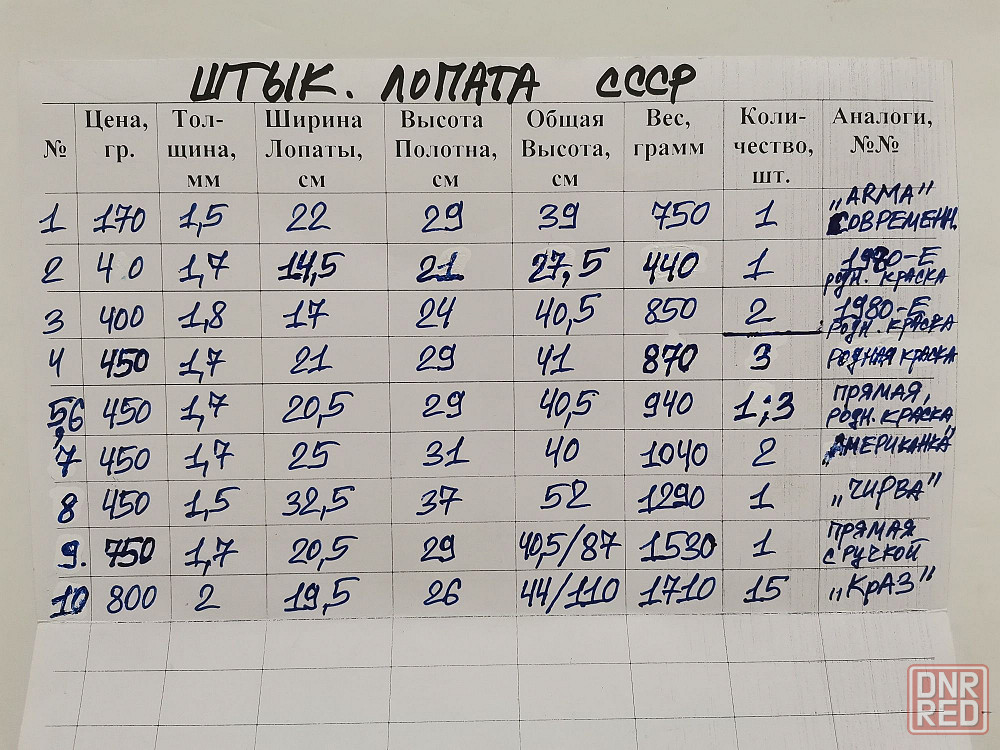 ШТЫК. ЛОПАТА СССР
№ Цена, гр. Тол-щина, мм Ширина Лопаты, см Высота Полотна, см Общая Высота, см Вес, грамм Коли-чество, шт. Аналоги, №№
1 170 1,5 22 29 39 750 1 "ARMA" СОВРЕМЕНН.
2 1,7 14,5 21 27,5 440 1 родн. КРАСКА
3 400 1,8 17 24 40,5 850 2 1980-Е РОДН. КРАСКА
4 450 1,7 21 29 41 870 3 РОДНАЯ КРАСКА
56 450 1,7 20,5 29 40,5 940 1;3 ПРЯМАЯ, РОДН. КРАСКА
7 450 1,7 25 31 40 1040 2 "АМЕРИКАНКА"
8 450 1,5 32,5 37 52 1290 1 "ЧИРВА"
9. 750 1,7 20,5 29 40,5/87 1530 1 ПРЯМАЯ С РУЧКОЙ
10 800 2 19,5 26 44/110 1710 15 "КрАЗ"
DNR
RED